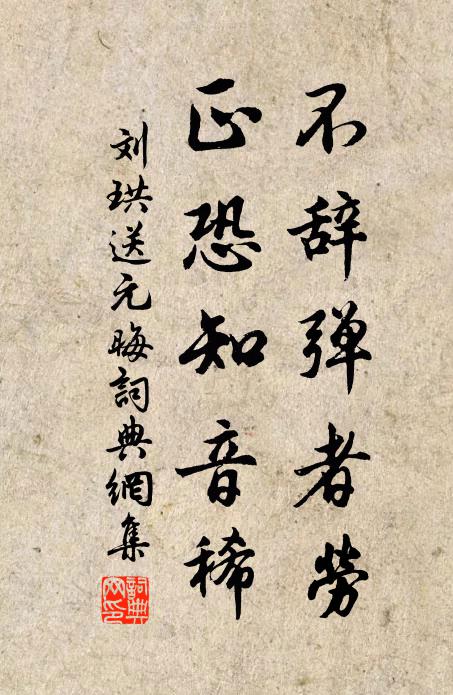 不辞弹者劳
正恐知音稀
刘珙送元晦詞典網集
詞典网印